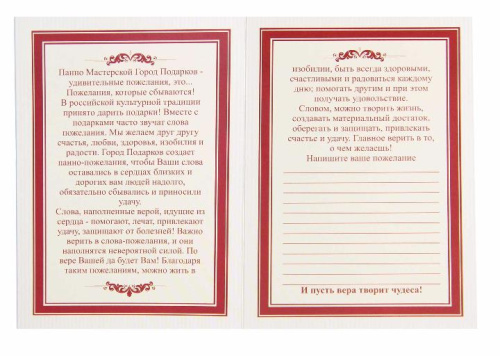 Панно Мастерской Город Подарков -
удивительные пожелания, это...
Пожелания, которые сбываются!
В российской культурной традиции
принято дарить подарки! Вместе с
подарками часто звучат слова
пожелания. Мы желаем друг другу
счастья, любви, здоровья, изобилия и
радости. Город Подарков создает
панно-пожелания, чтобы Ваши слова
оставались в сердцах близких и
дорогих вам людей надолго,
обязательно сбывались и приносили
удачу.
Слова, наполненные верой, идущие из
сердца - помогают, лечат, привлекают
удачу, защищают от болезней! Важно
верить в слова-пожелания, и они
наполнятся невероятной силой. По
вере Вашей да будет Вам! Благодаря
таким пожеланиям, можно жить в
изобилии, быть всегда здоровыми,
счастливыми и радоваться каждому
дню; помогать другим и при этом
получать удовольствие.
Словом, можно творить жизнь,
создавать материальный достаток,
оберегать и защищать, привлекать
счастье и удачу. Главное верить в то,
о чем желаешь!
Напишите ваше пожелание
И пусть вера творит чудеса!